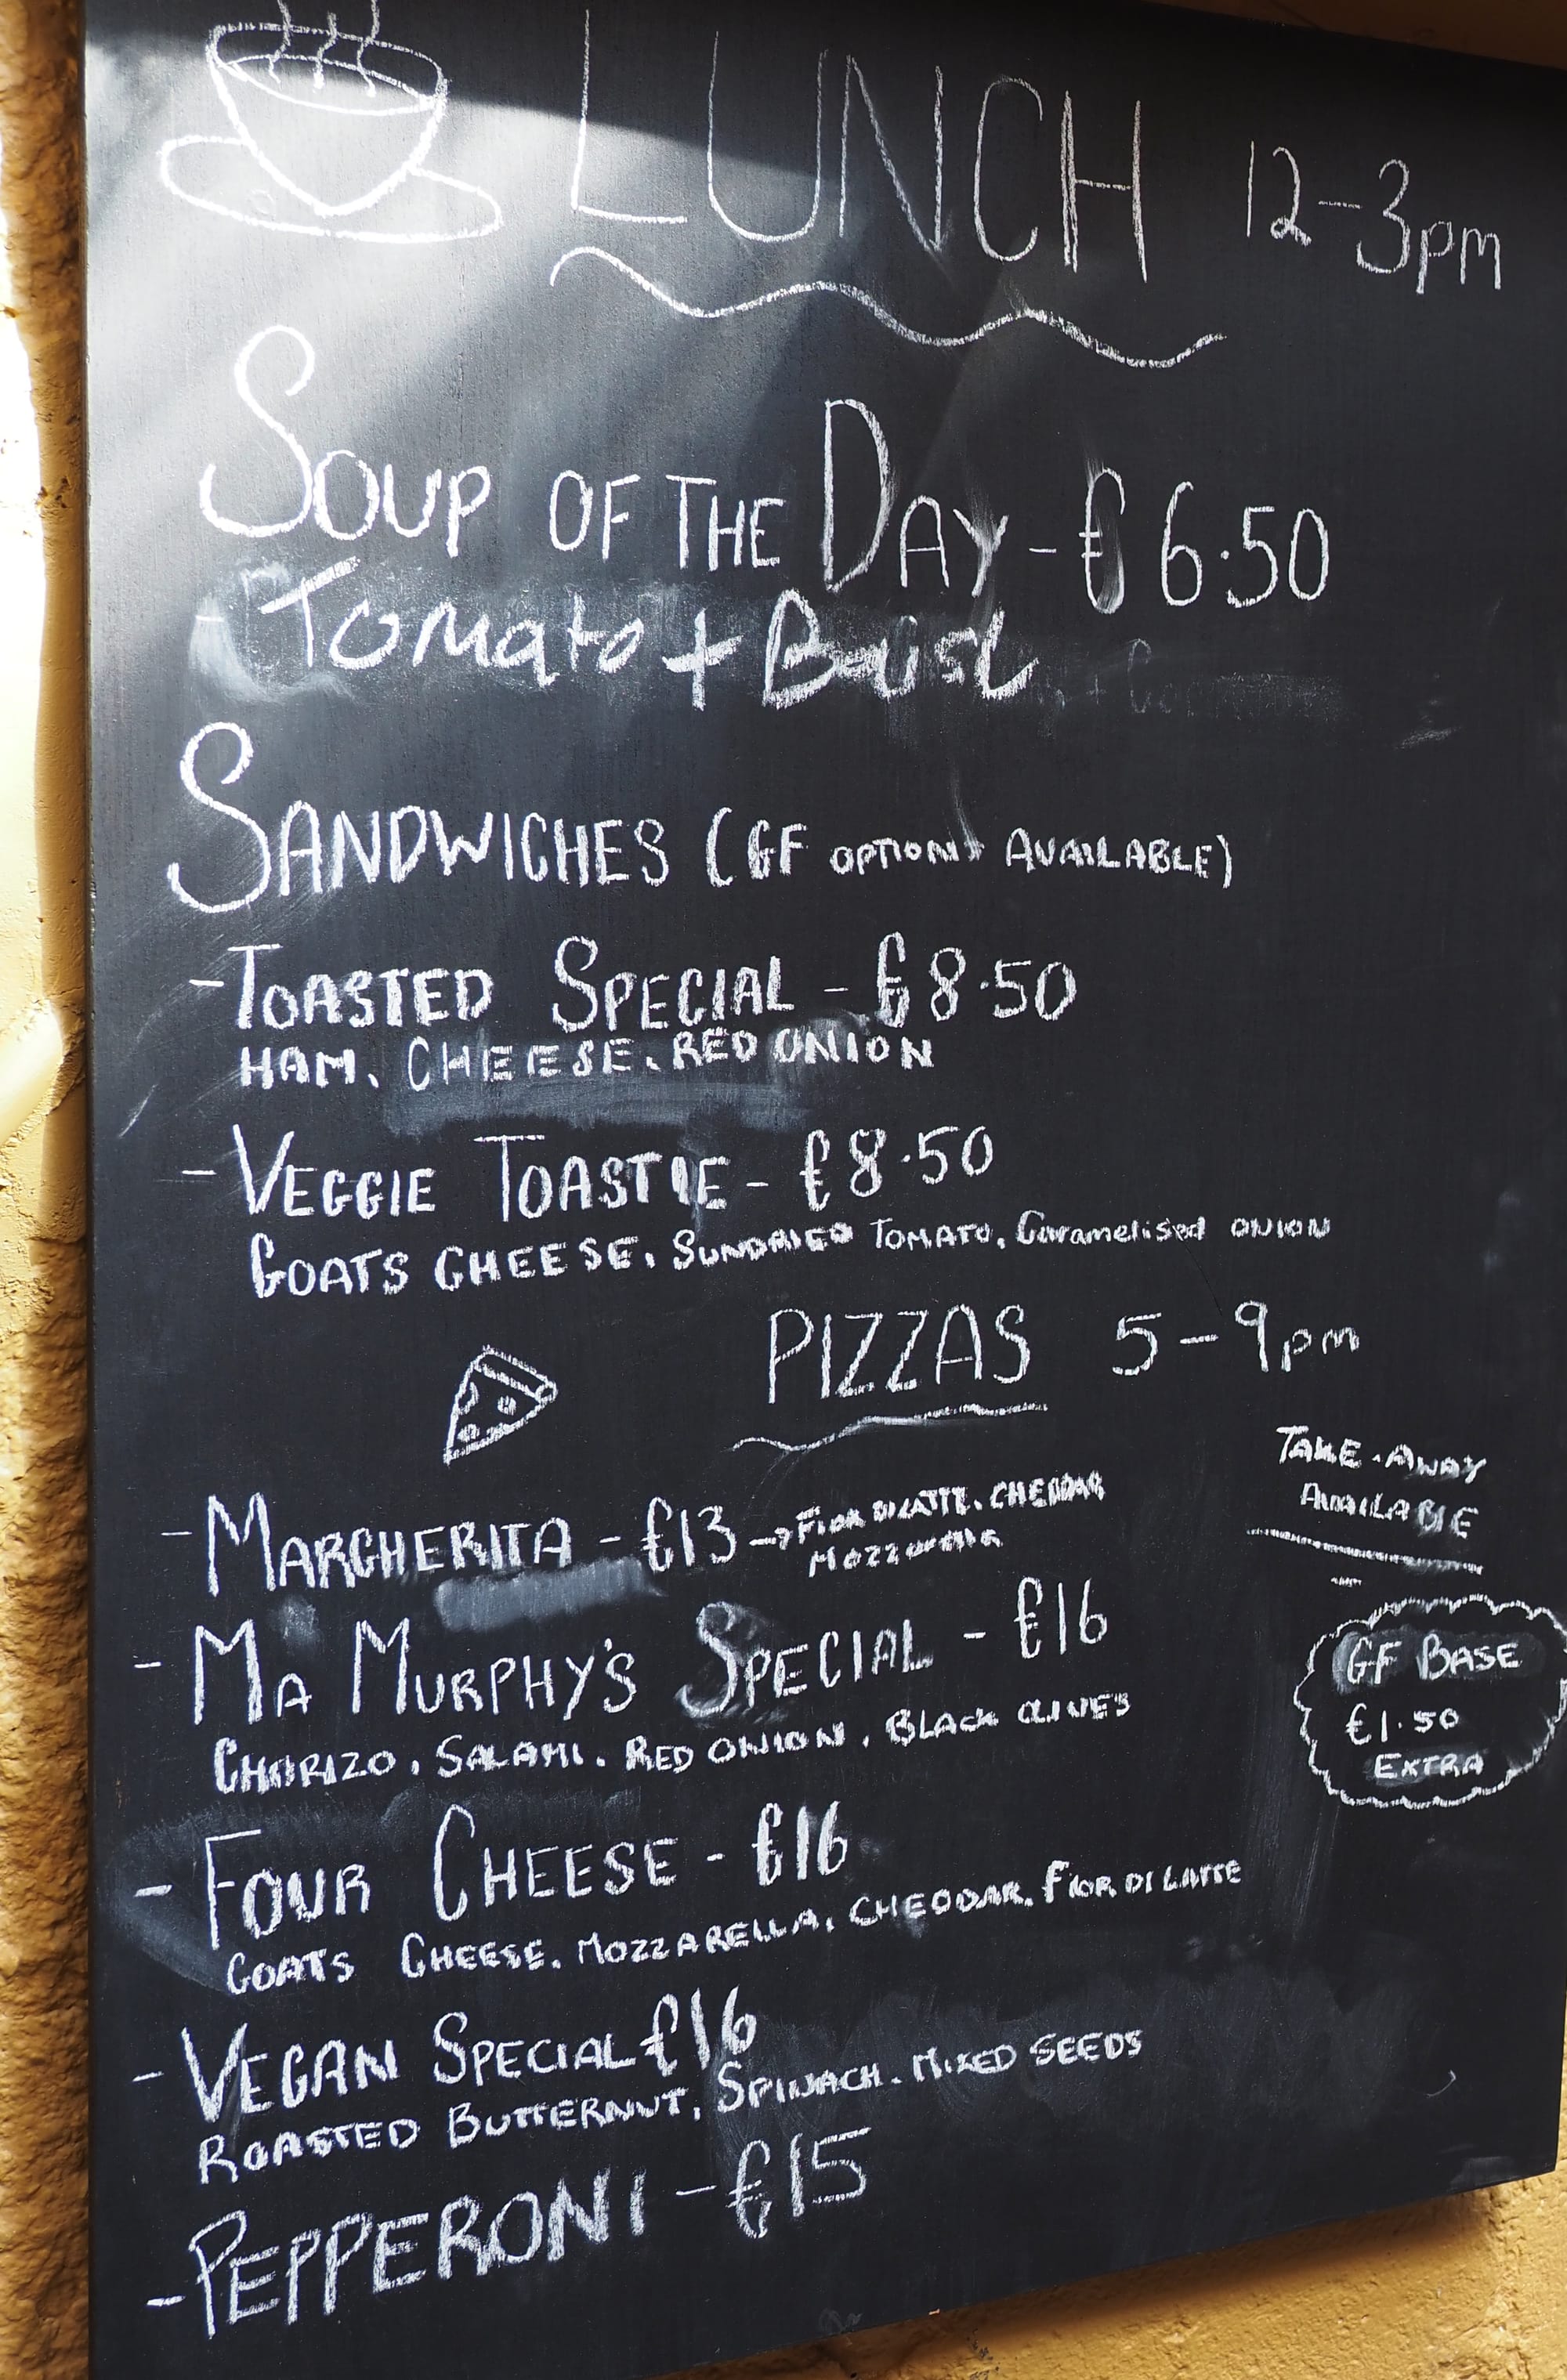 LUNCH 12-3pm
SOUP OF THE DAY - € 6.50
- Tomato + Basil
SANDWICHES (GF OPTIONS AVAILABLE)
- TOASTED SPECIAL - €8.50
HAM, CHEESE, RED ONION
- VEGGIE TOASTIE - €8.50
GOATS CHEESE, SUNDRIED TOMATO, Caramelised ONION
PIZZAS 5-9pm
TAKE-AWAY
AVAILABLE
- MARGHERITA - €13 → FIOR DI LATTE, CHEDDAR
MOZZARELLA
- MA MURPHY'S SPECIAL - €16
CHORIZO, SALAMI, RED ONION, BLACK OLIVES
GF BASE
€1.50
EXTRA
- FOUR CHEESE - €16
GOATS CHEESE, MOZZARELLA, CHEDDAR, FIOR DI LATTE
- VEGAN SPECIAL €16
ROASTED BUTTERNUT, SPINACH, MIXED SEEDS
- PEPPERONI - €15